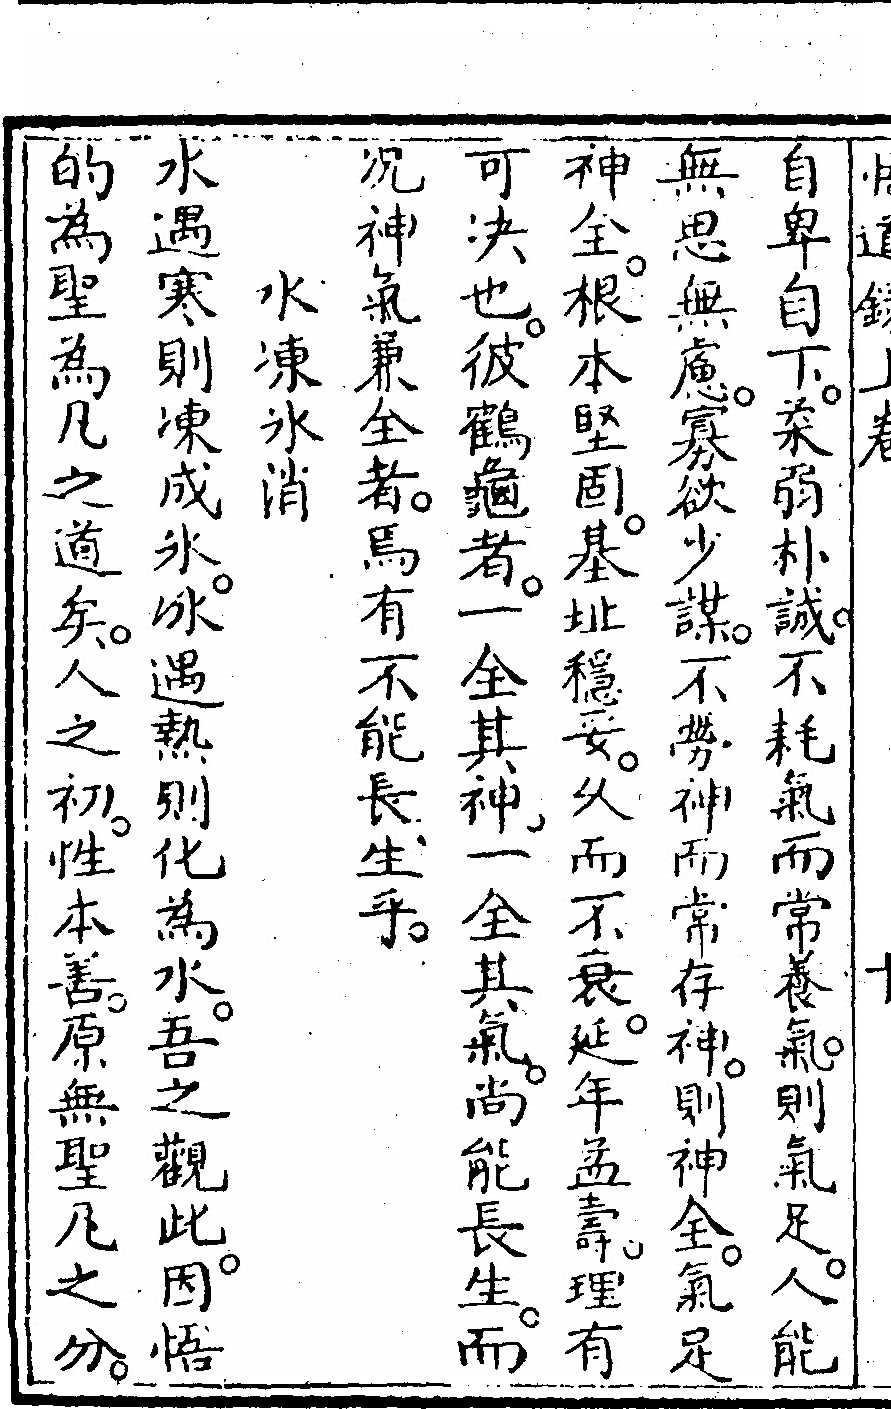 悟道錄上卷 十
自卑自下。柔弱朴誠。不耗氣而常養氣。則氣足。人能
無思無慮。寡欲少謀。不勞神而常存神。則神全。氣足
神全。根本堅固。基址穩妥。久而不衰。延年益壽。理有
可决也。彼鶴龜者。一全其神。一全其氣。尚能長生。而
况神氣兼全者。焉有不能長生乎。
水凍氷消
水遇寒則凍成氷。氷遇熱則化為水。吾之觀此。因悟
的為聖為凡之道矣。人之初。性本善。原無聖凡之分。